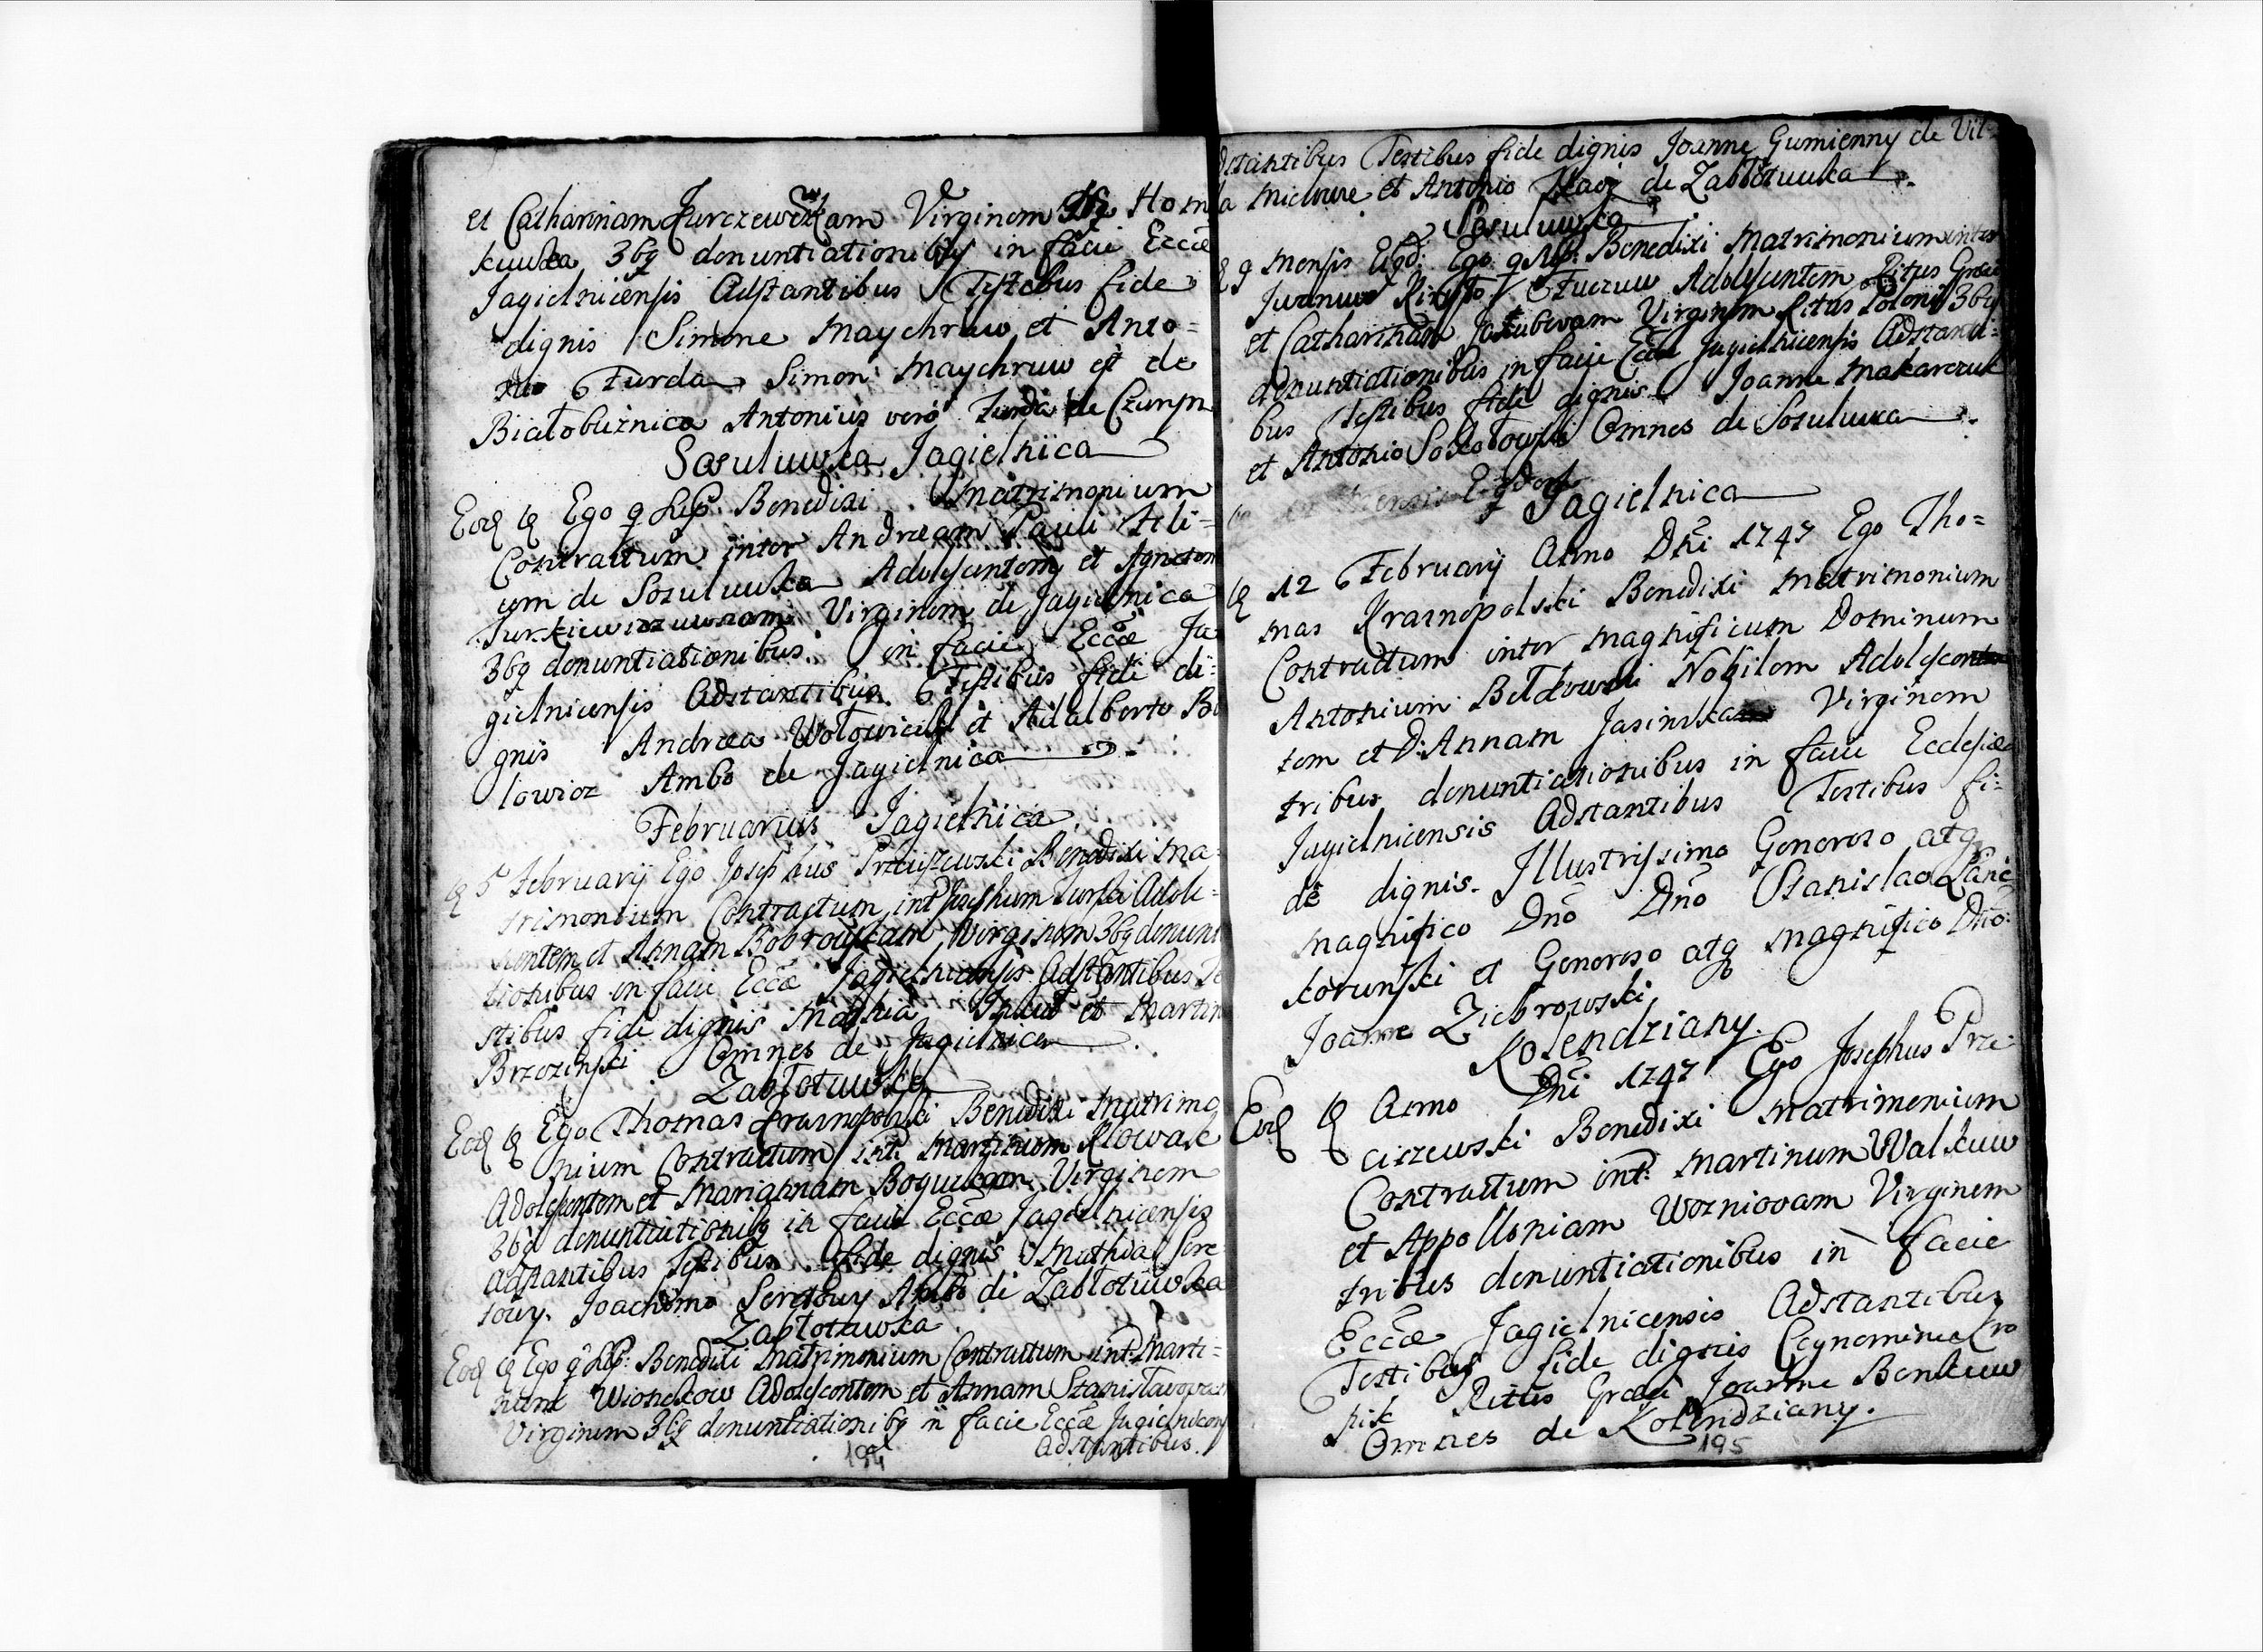 et Catharinam Jurczewskam Virginem de Hom
kuwka 3bq denuntiationibq in facie Eccæ
Jagielnicensis Adstantibus Testibus fide
dignis Simone Maychruw et Anto=
nio Furda Simon Maychruw est de
Białobuznica Antonius vero Furda de Czump
Sosuluwka Jagielnica
Eod Ego q supr Benedixi Matrimonium
Contractum inter Andream Pauli Fili=
um de Sosuluwka Adolescentem et Agnetem
Virginem de Jagielnica
3bq denuntiationibus in facie Eccæ Ja
gielnicensis Adstantibus Testibus fide di=
gnis Andrea et Adalberto
lowicz Ambo de Jagielnica
Februarius Jagielnica
5 February Ego Josephus Przeciszewski Benedixi Ma=
trimonium Contractum int Josephum Adole=
scentem et Annam Bobrowskam Virginem 3bq denunt
tionibus in facie Eccæ Jagielnicensis Adstantibus Te
stibus fide dignis Mathia et Martin
Brzozinski Omnes de Jagielnica
Zabłotuwka
Eod Ego Thomas Krasnopolski Benedixi Matrimo
nium Contractum int Martinum Nowak
Adolescentem et Mariannam Virginem
3bq denuntiationibq in facie Eccæ Jagielnicensis
Adstantibus Testibus fide dignis Mathia Sere
towy. Joachimo Seretowy Ambo de Zabłotuwka
Zabłotuwka
Eod Ego q supr: Benedixi Matrimonium Contractum int: Marti=
num Adolescentem et Annam Stanisławowam
Virginem 3bq denuntiationibq in facie Eccæ Jagielnicen
Adstantibus.
194
dstantibus Testibus fide dignis Joanne Gumienny de Vil=
la Michowe et Antonio de Zabłotuwka
Sosuluwka
9 Mensis Eigd: Ego q sup: Benedixi Matrimonium inter
Adolescentem Ritus Græci
et Catharinam Jakubowam Virginem Ritus Poloni 3bq
denuntiationibus in facie Eccæ Jagielnicensis Adstanti=
bus Testibus fide dignis Joanne Makarczuk
et Antonio Sokołowski Omnes de Sosuluwka
Mensis Eigdem
Jagielnica
12 February Anno Dni 1747 Ego Tho=
mas Krasnopolski Benedixi Matrimonium
Contractum inter Magnificum Dominum
Antonium Bełdowski Nobilem Adolescen
tem et D: Annam Jasinskam Virginem
tribus denuntiationibus in facie Ecclesiæ
Jagielnicensis Adstantibus Testibus fi=
de dignis. Illustrissimo Generoso atq
Magnifico Dno Dno Stanislao Lanc
korunski et Generoso atq Magnifico Dno:
Joanne Ziebrowski
Kolendziany.
Eod Anno Dni 1747 Ego Josephus Prze
ciszewski Benedixi Matrimonium
Contractum int: Martinum Walkuw
et Appolloniam Wozniowam Virginem
tribus denuntiationibus in facie
Eccæ Jagielnicensis Adstantibus
Testibus fide dignis Cognomine Cro
pik Rittus Græci Joanne Benkuw
Omnes de Kolendziany.
195